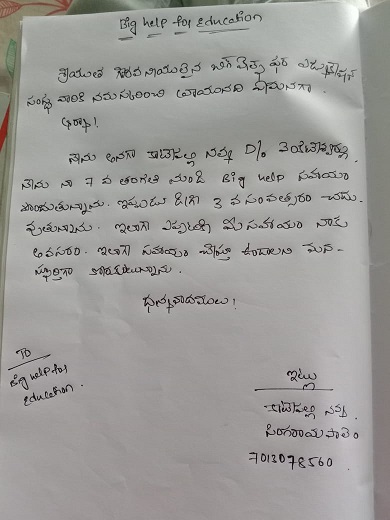 Big help for Education
శ్రీయుత గౌరవనీయులైన బిగ్ హెల్ప్ ఫర్ ఎడ్యుకేషన్
సంస్థ వారికి నమస్కరించి వ్రాయునది ఏమనగా.
నేను అనగా కాటేపల్లి నవ్య D/o వెంకటేశ్వర్లు.
నేను నా 7 వ తరగతి నుండి Big help సహాయం
పొందుతున్నాను. ఇప్పుడు డిగ్రీ 3 వ సంవత్సరం చదు-
వుతున్నాను. ఇలాగే ఎప్పుడూ మీ సహాయం నాకు
అవసరం. ఇలాగే సహాయం చేస్తూ ఉండాలని మన-
స్ఫూర్తిగా కోరుకుంటున్నాను.
ధన్యవాదములు!
TO
Big help for
Education.
ఇట్లు
కాటేపల్లి నవ్య
సింగరాయపాలెం
7013078560.